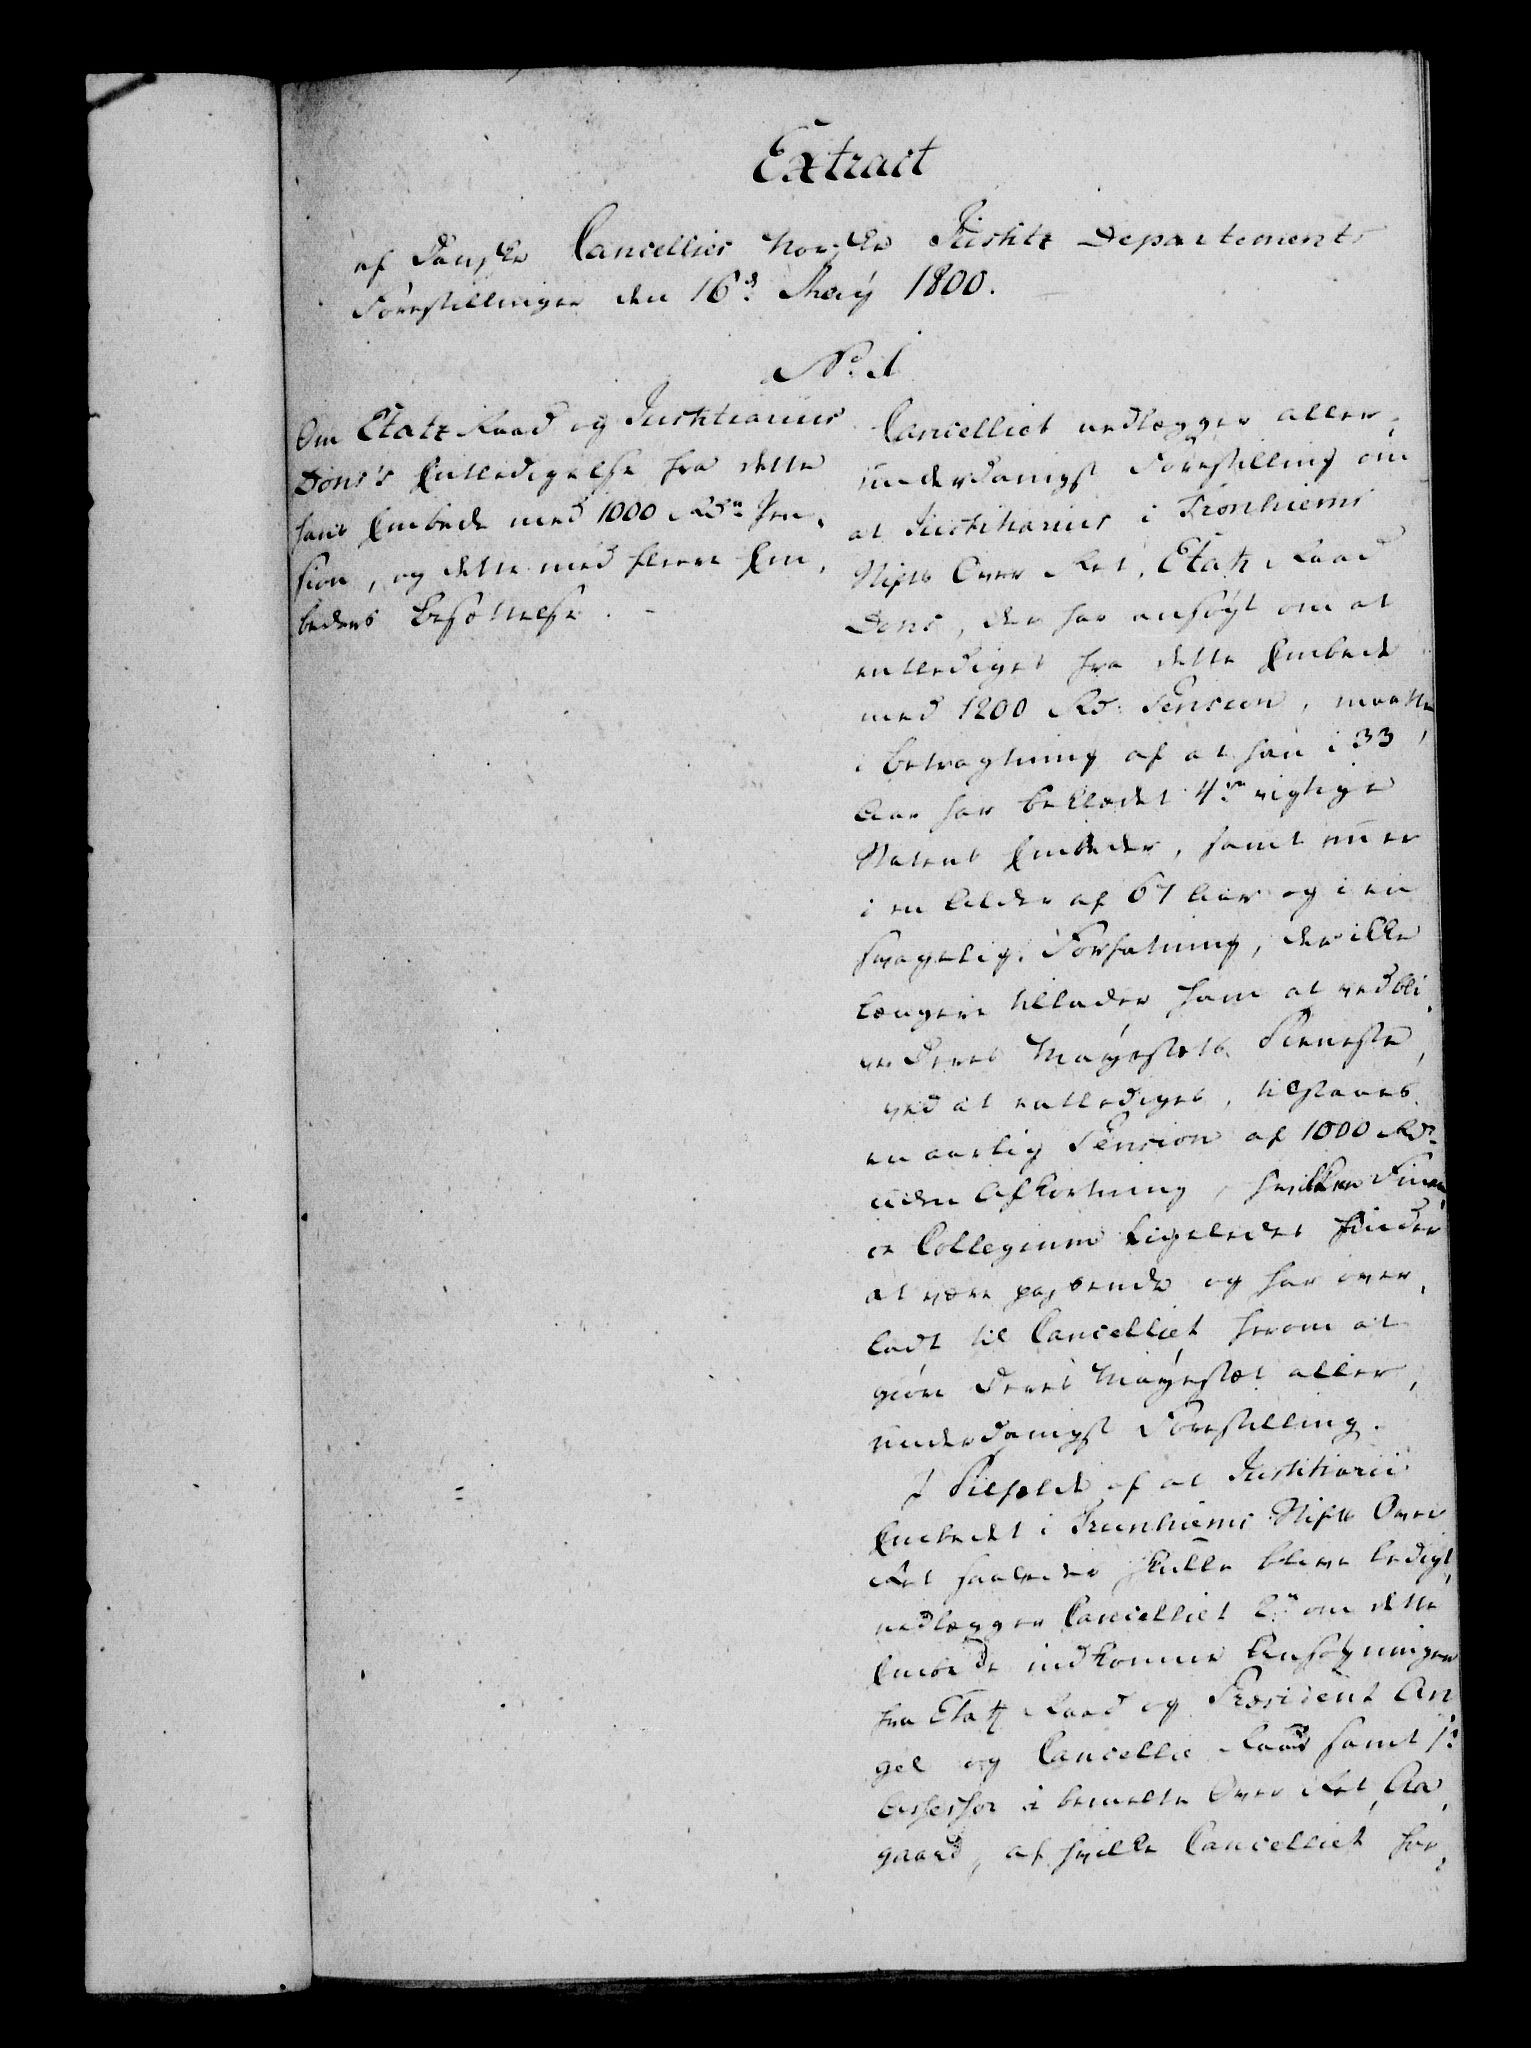 Extract
af Danske Cancellies Norske Justitz Departements
Forestillinger den 16d. May 1800.
No. 1
Om Etatz Raad og Justitiarius
Dons's Entledigelse fra dette
hans Embede med 1000 Rdr. Pen-
sion, og dette med flere Em-
beders Besættelse.
Cancelliet nedlægger aller-
underdanigst Forestilling om
at Justitiarius i Tronhiems
Stifts Over Ret, Etatz Raad
Dons, der har ansøgt om at
entlediges fra dette Embede
med 1200 Rd. Pension, maatte
i Betragtning af at han i 33
Aar har beklædet 4re vigtige
Statens Embeder, samt nu er
i en Alder af 67 Aar og i en
svagelig Forfatning, der ikke
længere tillader ham at vedbli-
ve Deres Mayestæts Tieneste,
ved at entlediges, tilstaaes
en aarlig Pension af 1000 Rdr.
uden Afkortning, hvilken Finan-
ce Collegium ligeledes finder
at være passende og har over-
ladt til Cancelliet herom at
giøre Deres Mayestæt aller-
underdanigst Forestilling.
I Tilfælde af at Justitiarii
Embedet i Trunhiems Stifts Over
Ret saaledes skulle blive ledigt,
nedlægger Cancelliet de om dette
Embede indkomne Ansøgninger
fra Etatz Raad og Præsident An-
gel og Cancellie Raad samt 1ste
Assessor i bemelte Over Ret, Aa-
gaard, af hvilke Cancelliet for-